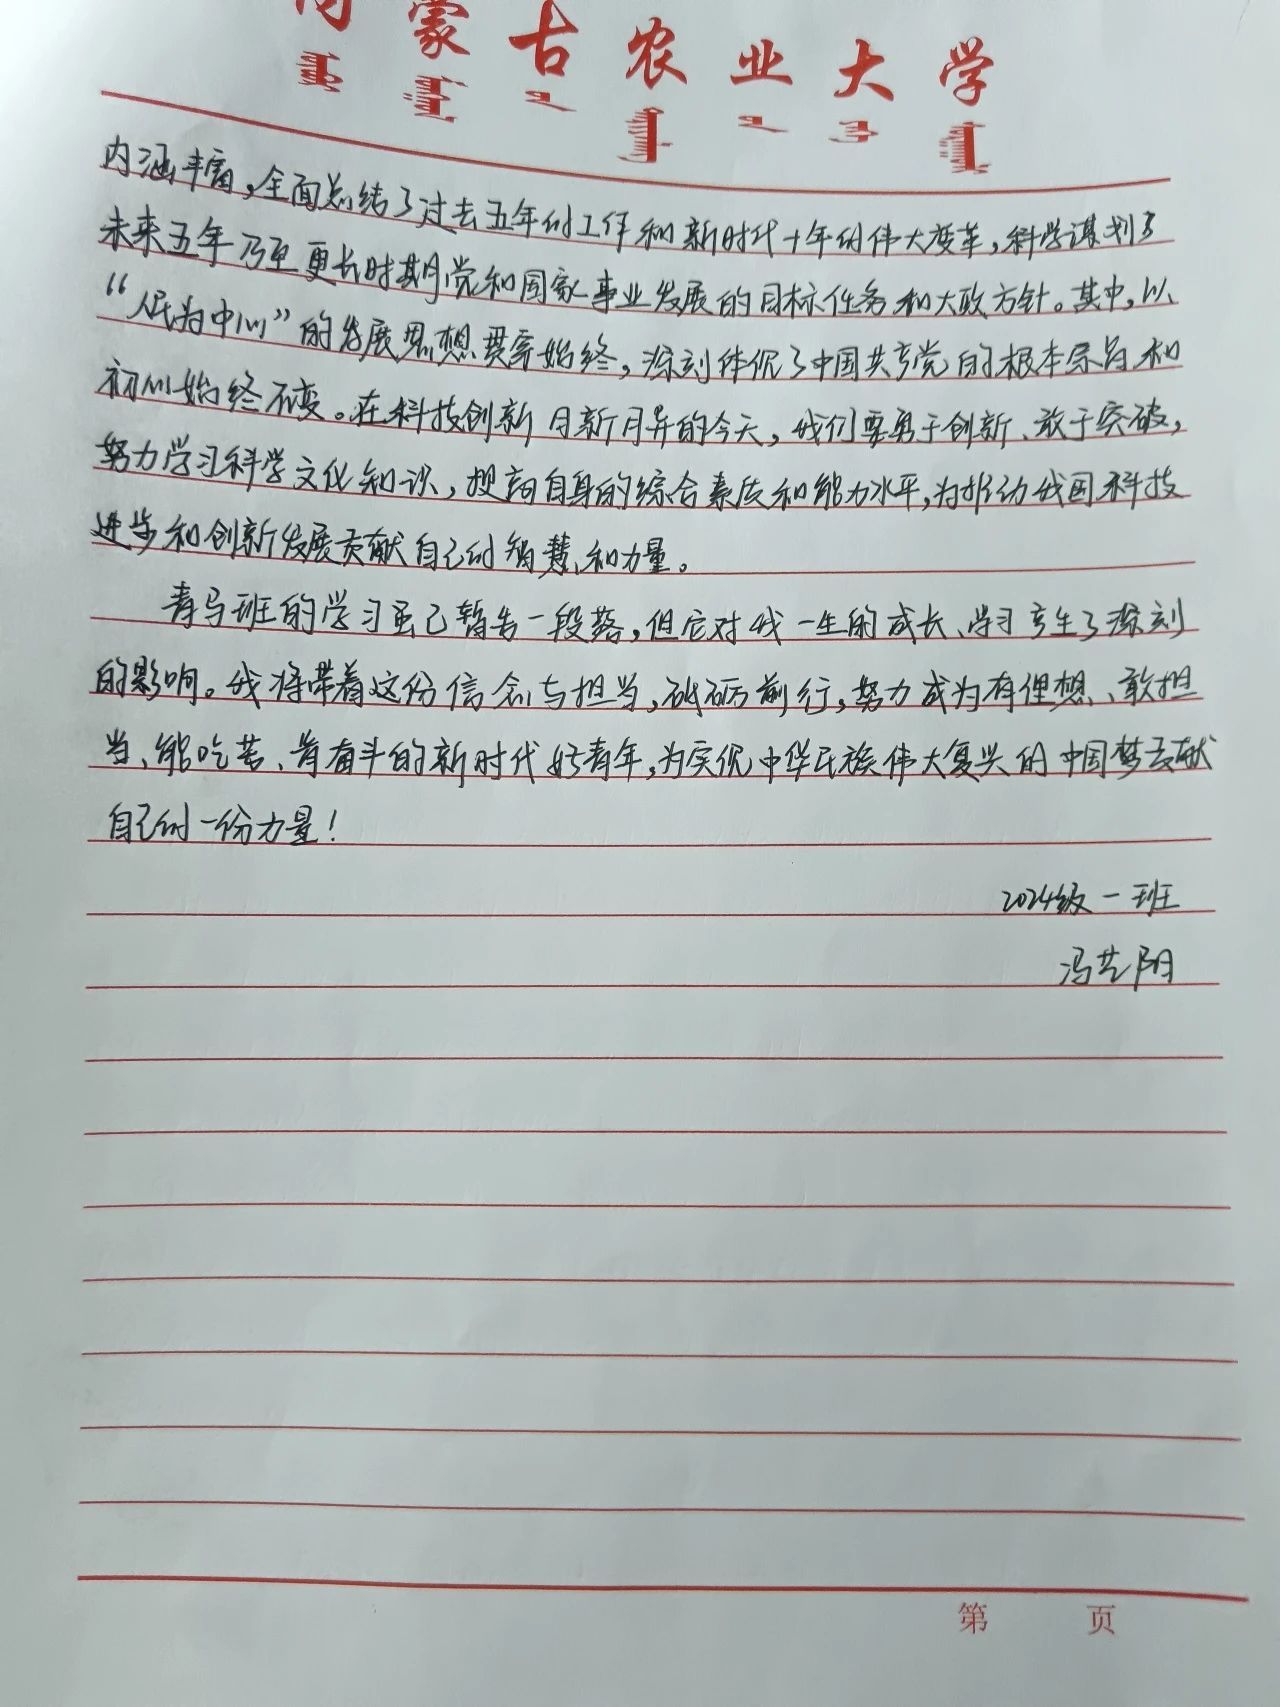 内蒙古农业大学
内涵丰富，全面总结了过去五年的工作和新时代十年的伟大变革，科学谋划了
未来五年乃至更长时期党和国家事业发展的目标任务和大政方针。其中，以
“人民为中心”的发展思想贯穿始终，深刻体现了中国共产党的根本宗旨和
初心始终不变。在科技创新日新月异的今天，我们要勇于创新、敢于突破，
努力学习科学文化知识，提高自身的综合素质和能力水平，为推动我国科技
进步和创新发展贡献自己的智慧和力量。
青马班的学习虽已暂告一段落，但它对我一生的成长、学习产生了深刻
的影响。我将带着这份信念与担当，砥砺前行，努力成为有理想、敢担
当、能吃苦、肯奋斗的新时代好青年，为实现中华民族伟大复兴的中国梦贡献
自己的一份力量！
2024级一班
冯艺阳
第 页